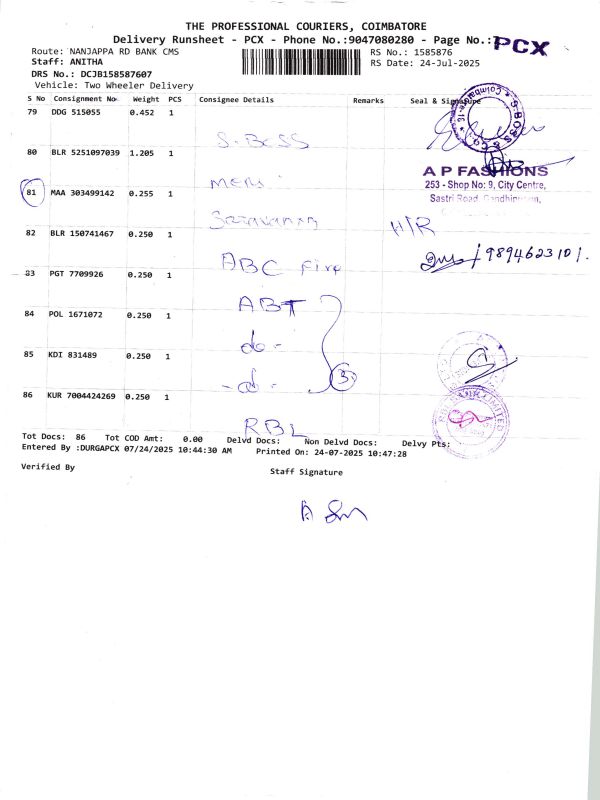 THE PROFESSIONAL COURIERS, COIMBATORE
Delivery Runsheet - PCX - Phone No.:9047080280 - Page No.:7
PCX
Route: NANJAPPA RD BANK CMS
RS No.: 1585876
Staff: ANITHA
RS Date: 24-Jul-2025
DRS No.: DCJB158587607
Vehicle: Two Wheeler Delivery
S No Consignment No Weight PCS Consignee Details Remarks Seal & Signature
79 DDG 515055 0.452 1
S. BOSS
S. BOSS & CO.
80 BLR 5251097039 1.205 1
A P FASHIONS
253 - Shop No: 9, City Centre,
Sastri Road, Gandhipuram,
81 MAA 303499142 0.255 1
Saravanan
H/R
82 BLR 150741467 0.250 1
ABC Fire
9894623101.
83 PGT 7709926 0.250 1
ABT
84 POL 1671072 0.250 1
do -
3
85 KDI 831489 0.250 1
- do -
86 KUR 7004424269 0.250 1
RBL
Tot Docs: 86 Tot COD Amt: 0.00 Delvd Docs: Non Delvd Docs: Delvy Pts:
Entered By :DURGAPCX 07/24/2025 10:44:30 AM Printed On: 24-07-2025 10:47:28
Verified By
Staff Signature